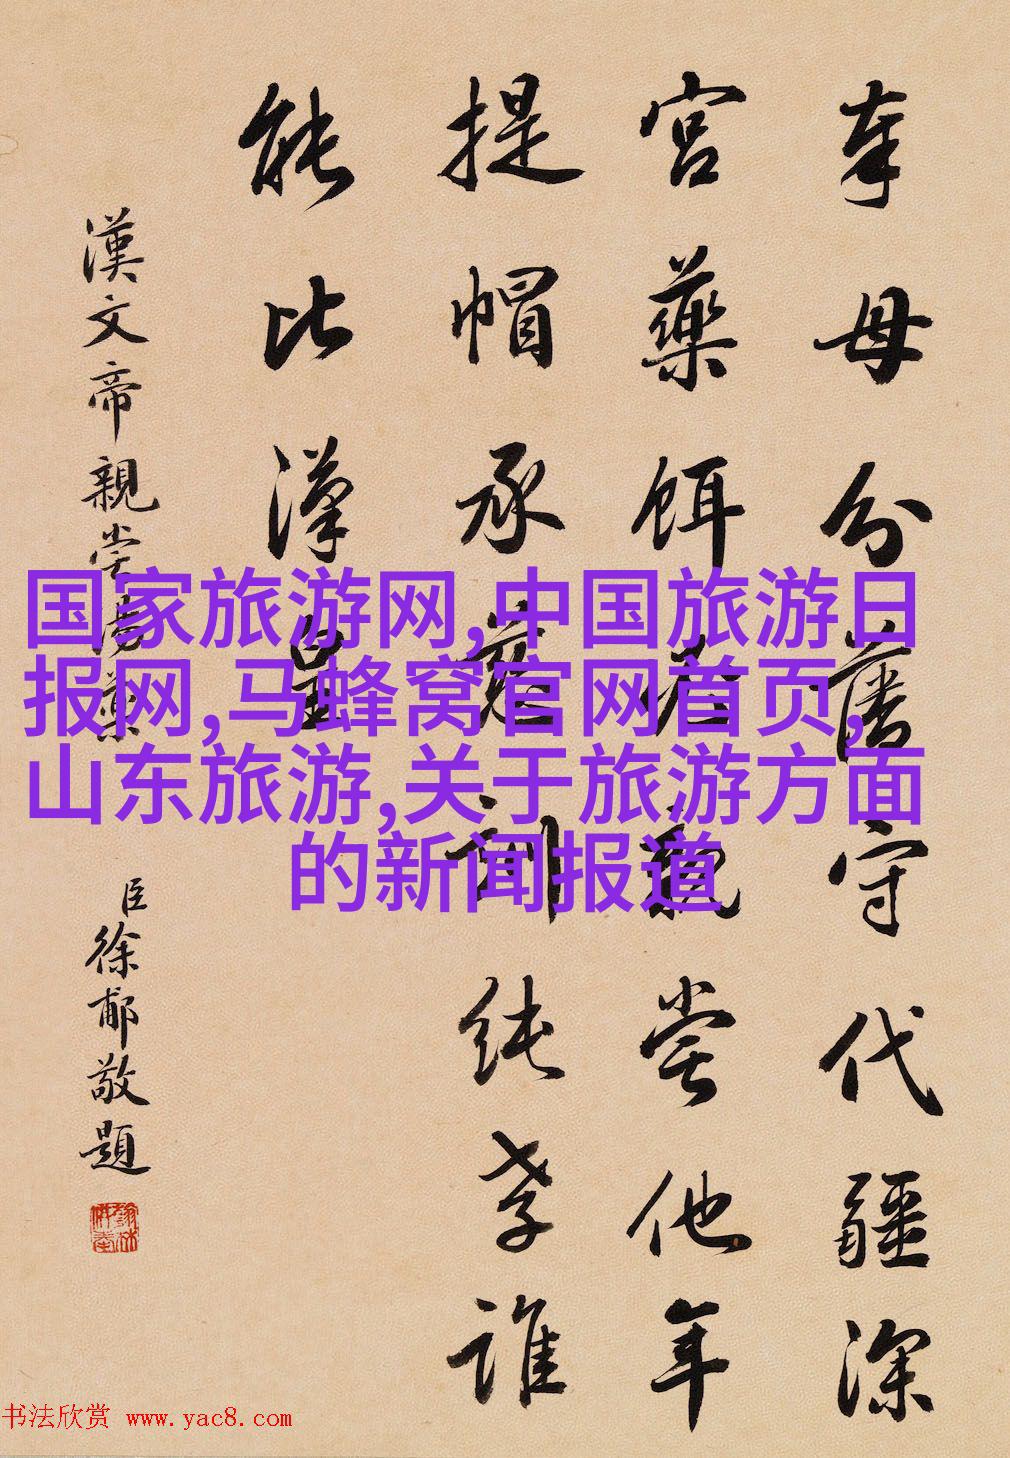 奉母分藩守代疆深
宮藥餌必親嘗他年
提帽承慈訓純孝誰
能比漢皇
漢文帝親嘗湯藥
臣徐郙敬題
国家旅游网,中国旅游日
报网,马蜂窝官网首页,
山东旅游,关于旅游方面
的新闻报道
书法欣赏 www.yac8.com